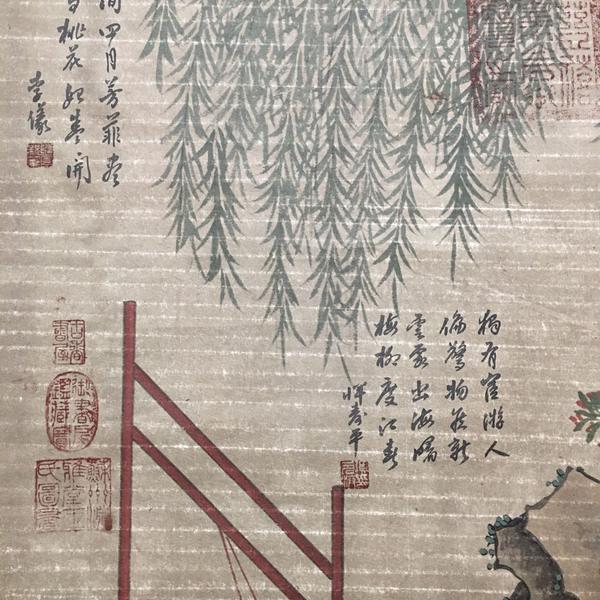 間四月芳菲盡
寺桃花始盛開
李儀
獨有宦游人
偏驚物候新
雲霞出海曙
梅柳度江春
惲壽平
御書房
鑑藏寶